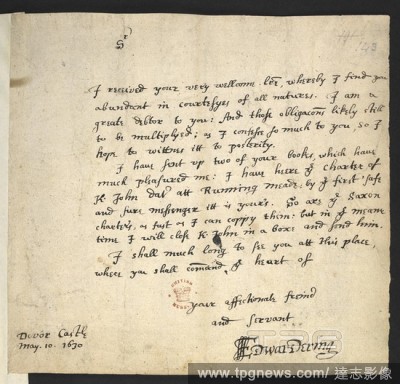 Sr
I received your very wellcome ler, whereby I find you
abundant in courtesyes of all natures. I am a
greate debtor to you: And those obligacons likely still
to be multiplyed; as I confesse so much to you, so I
hope to wittnes itt to posterity.
I have sent up two of your bookes, which have
much pleasured me: I have here ye charter of
K. John dat. att Running meade: by ye first safe
and sure messenger itt is yours. So are ye Saxon
charters, as fast as I can coppy them: but in ye meane
time I will close K. John in a boxe and send him.
I shall much long to see you att this place,
where you shall comand ye heart of
your affectionate freind
and servant
Edward Dering
Dovor Castle
May. 10. 1630
BRITISH
MUSEUM
143
© www.tpgnews.com / 達志影像